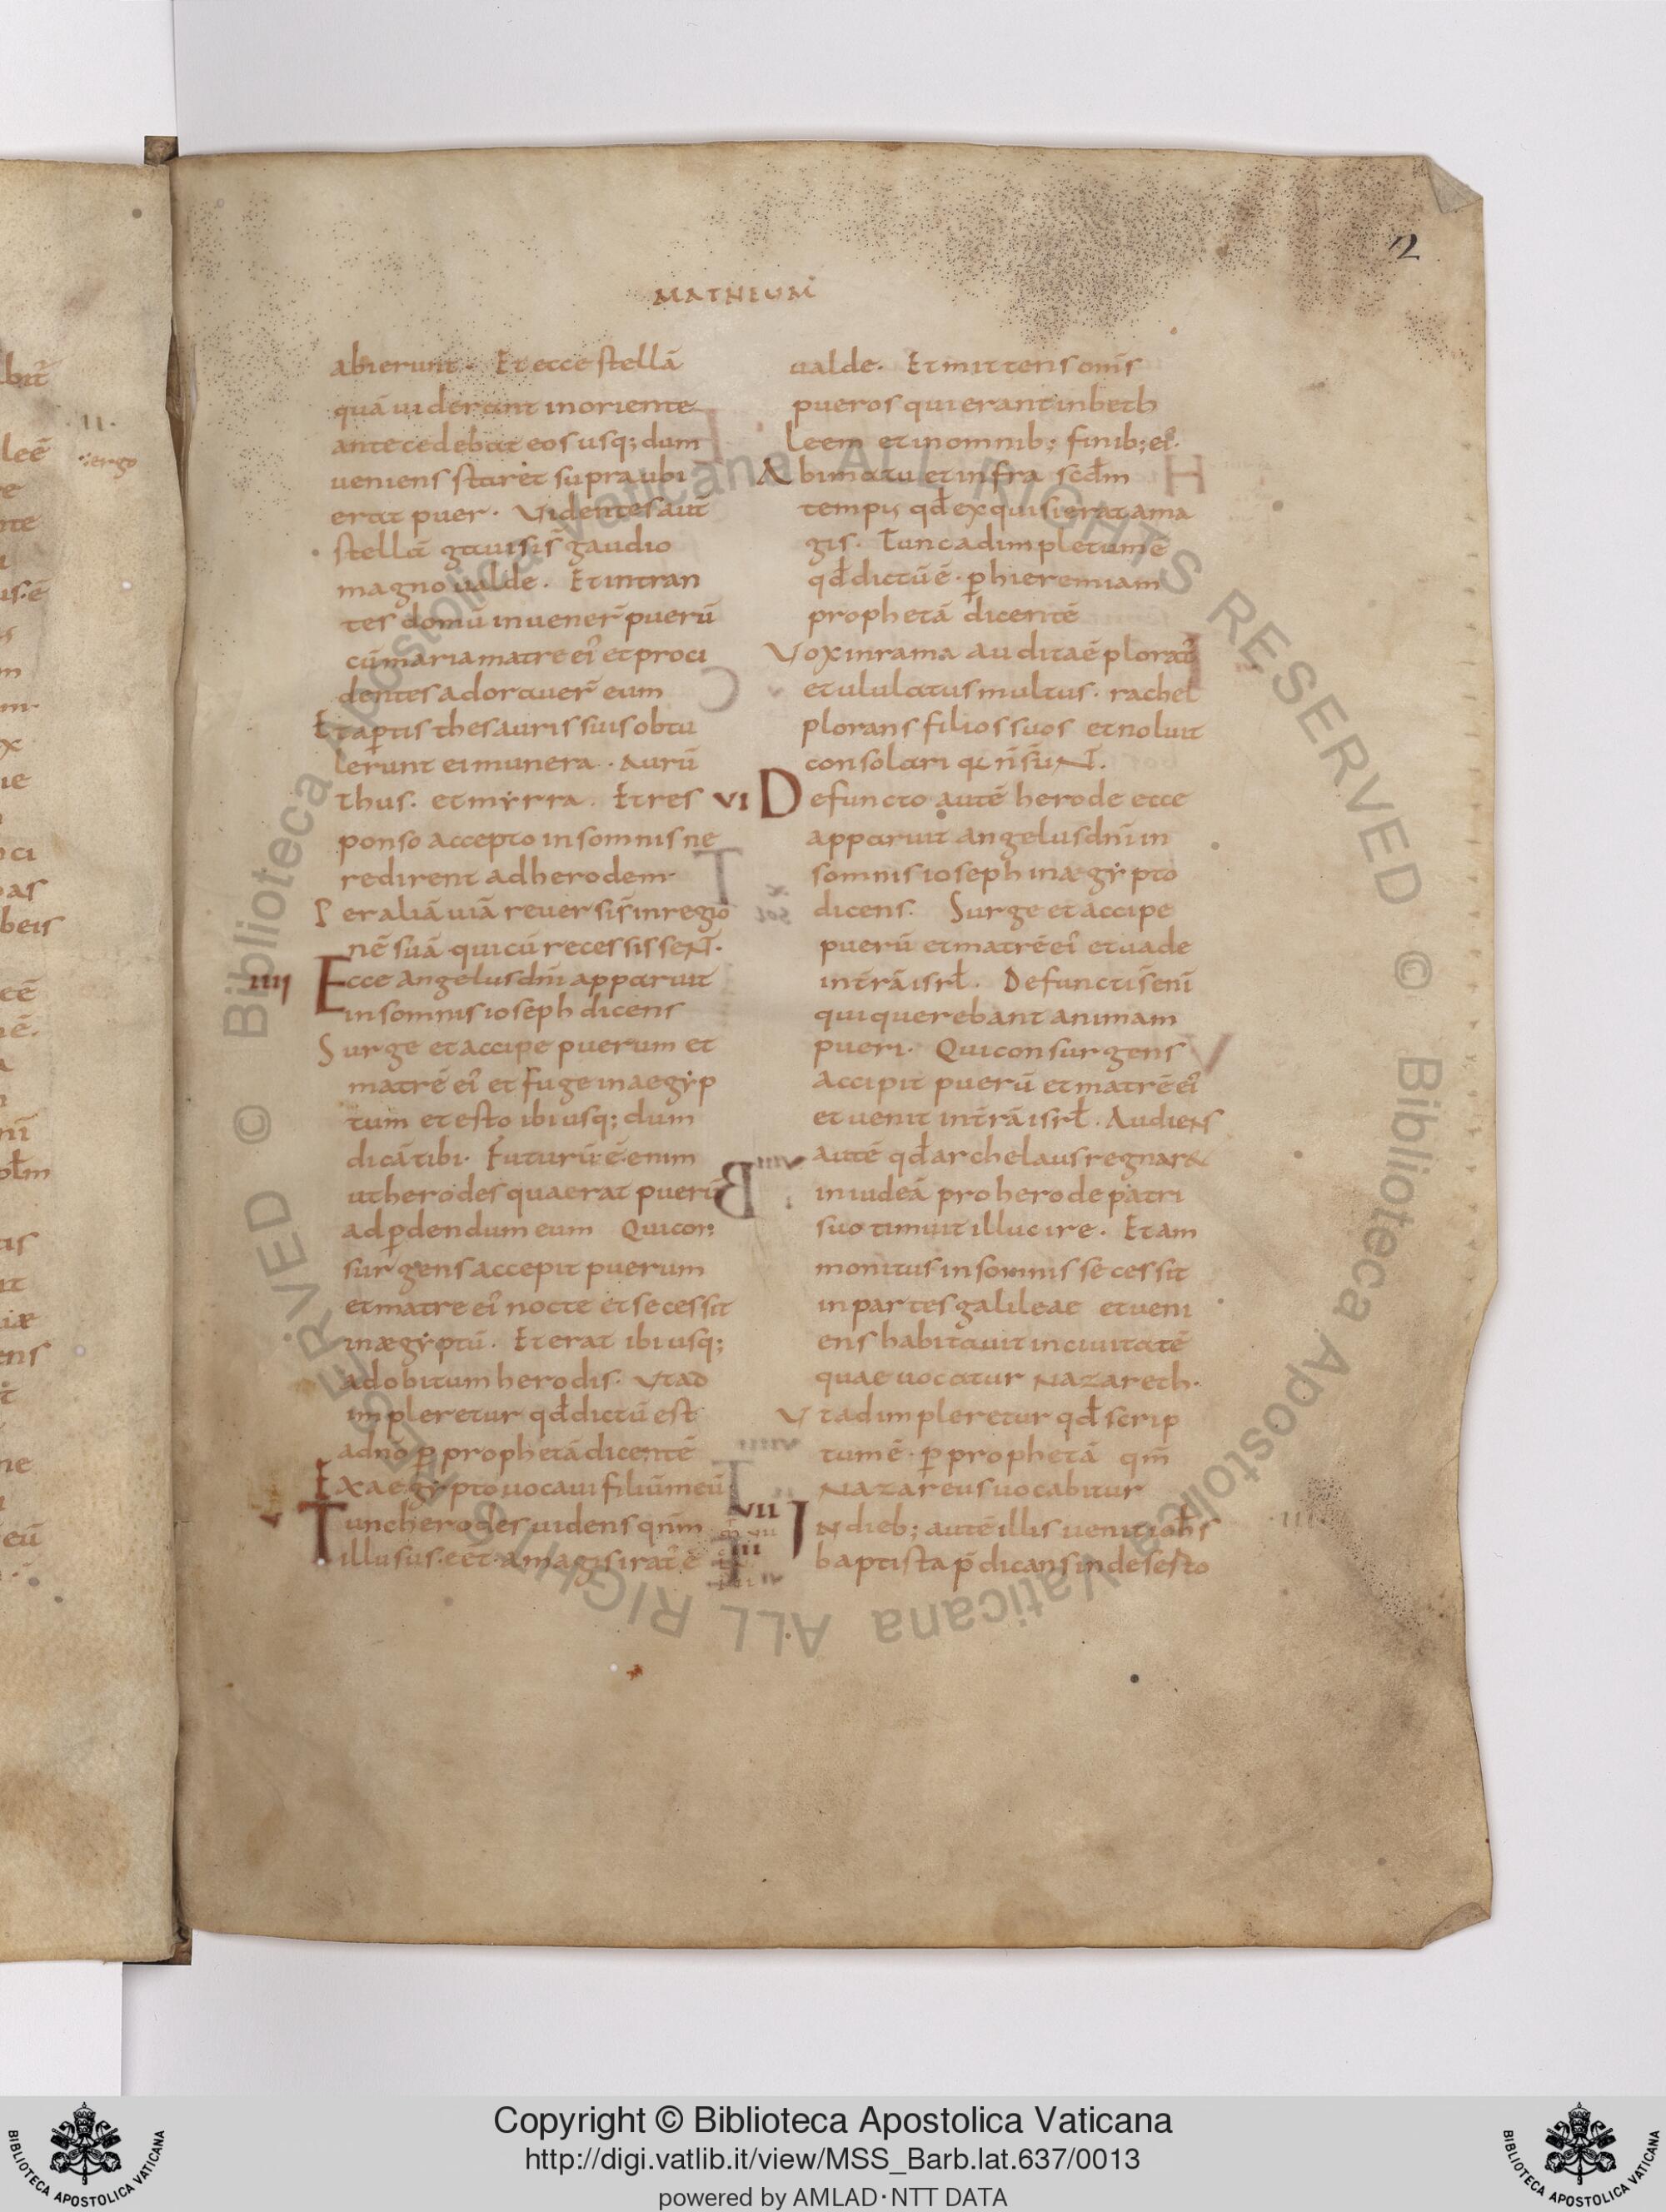 MATHEUM
2
abierunt. Et ecce stellā
quā uiderant inoriente
antecedebat eos usq; dum
ueniens staret supra ubi
erat puer. Uidentes aut̄
stellā gauisis̄ gaudio
magno ualde. Et intran
tes domū inuener̄ puerū
cū maria matre ei᾿ et proci
dentes adorauer̄ eum
Et ap̄tis thesauris suis obtu
lerunt ei munera. Aurū
thus. et myrra. Et res
ponso accepto insomnis ne
redirent adherodem.
Per aliā uiā reuersis̄ inregio
nē suā qui cū recessissent.
IIII Ecce angelus dn̄i apparuit
insomnis ioseph dicens
Surge et accipe puerum et
matrē ei᾿ et fuge inaegyp
tum et esto ibi usq; dum
dicā tibi. Futurū ē enim
ut herodes quaerat puerū
adp̄dendum eum Qui con
surgens accepit puerum
et matre ei᾿ nocte et secessit
inægyptū. Et erat ibi usq;
adobitum herodis. Utad
impleretur qđ dictū est
adn̄o p̄ prophetā dicentē
Exaegypto uocaui filiū meū
Tunc herodes uidens qn̄m
illusus.eēt. amagis irat᾿ ē
ualde. Et mittens om̄s
pueros qui erant inbeth
leem et inomnib; finib; ei᾿.
Abimatu et infra scđm
tempus qđ exquisierat ama
gis. Tunc adimpletum ē
qđ dictū ē. p̄ hieremiam
prophetā dicentē
Vox inrama audita ē plorat᾿
et ululatus multus. rachel
plorans filios suos et noluit
consolari q n̄ sunt.
VI Defuncto autē herode ecce
apparuit angelus dn̄i in
somnis ioseph inægypto
dicens. Surge et accipe
puerū et matrē ei᾿ et uade
int̄rā isrł. Defuncti s̄ enī
qui querebant animam
pueri. Qui consurgens
accipit puerū et matrē ei᾿
et uenit int̄rā isrł. Audiens
autē qđ archelaus regnar&
iniudeā pro herode patri
suo timuit illuc ire. Et am
monitus insomnis secessit
inpartes galileae et ueni
ens habitauit inciuitatē
quae uocatur Nazareth.
Utadimpleretur qđ scrip
tum ē. p̄ prophetā qm̄
Nazareus uocabitur
VII Indieb; autē illis uenit ioħs
baptista p̄dicans indeserto
III
Copyright © Biblioteca Apostolica Vaticana
http://digi.vatlib.it/view/MSS_Barb.lat.637/0013
powered by AMLAD·NTT DATA
BIBLIOTECA APOSTOLICA VATICANA
BIBLIOTECA APOSTOLICA VATICANA
© Biblioteca Apostolica Vaticana ALL RIGHTS RESERVED © Biblioteca Apostolica Vaticana ALL RIGHTS RESERVED